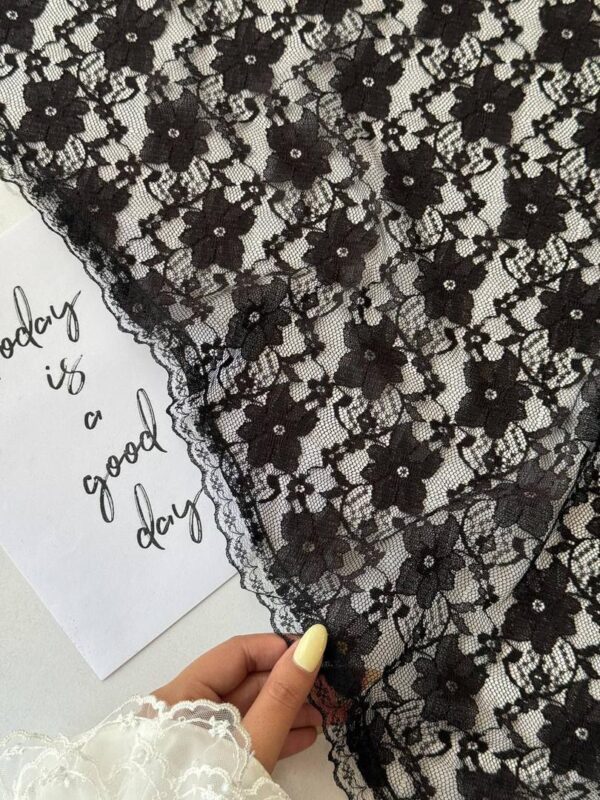 oday
is
a
good
day